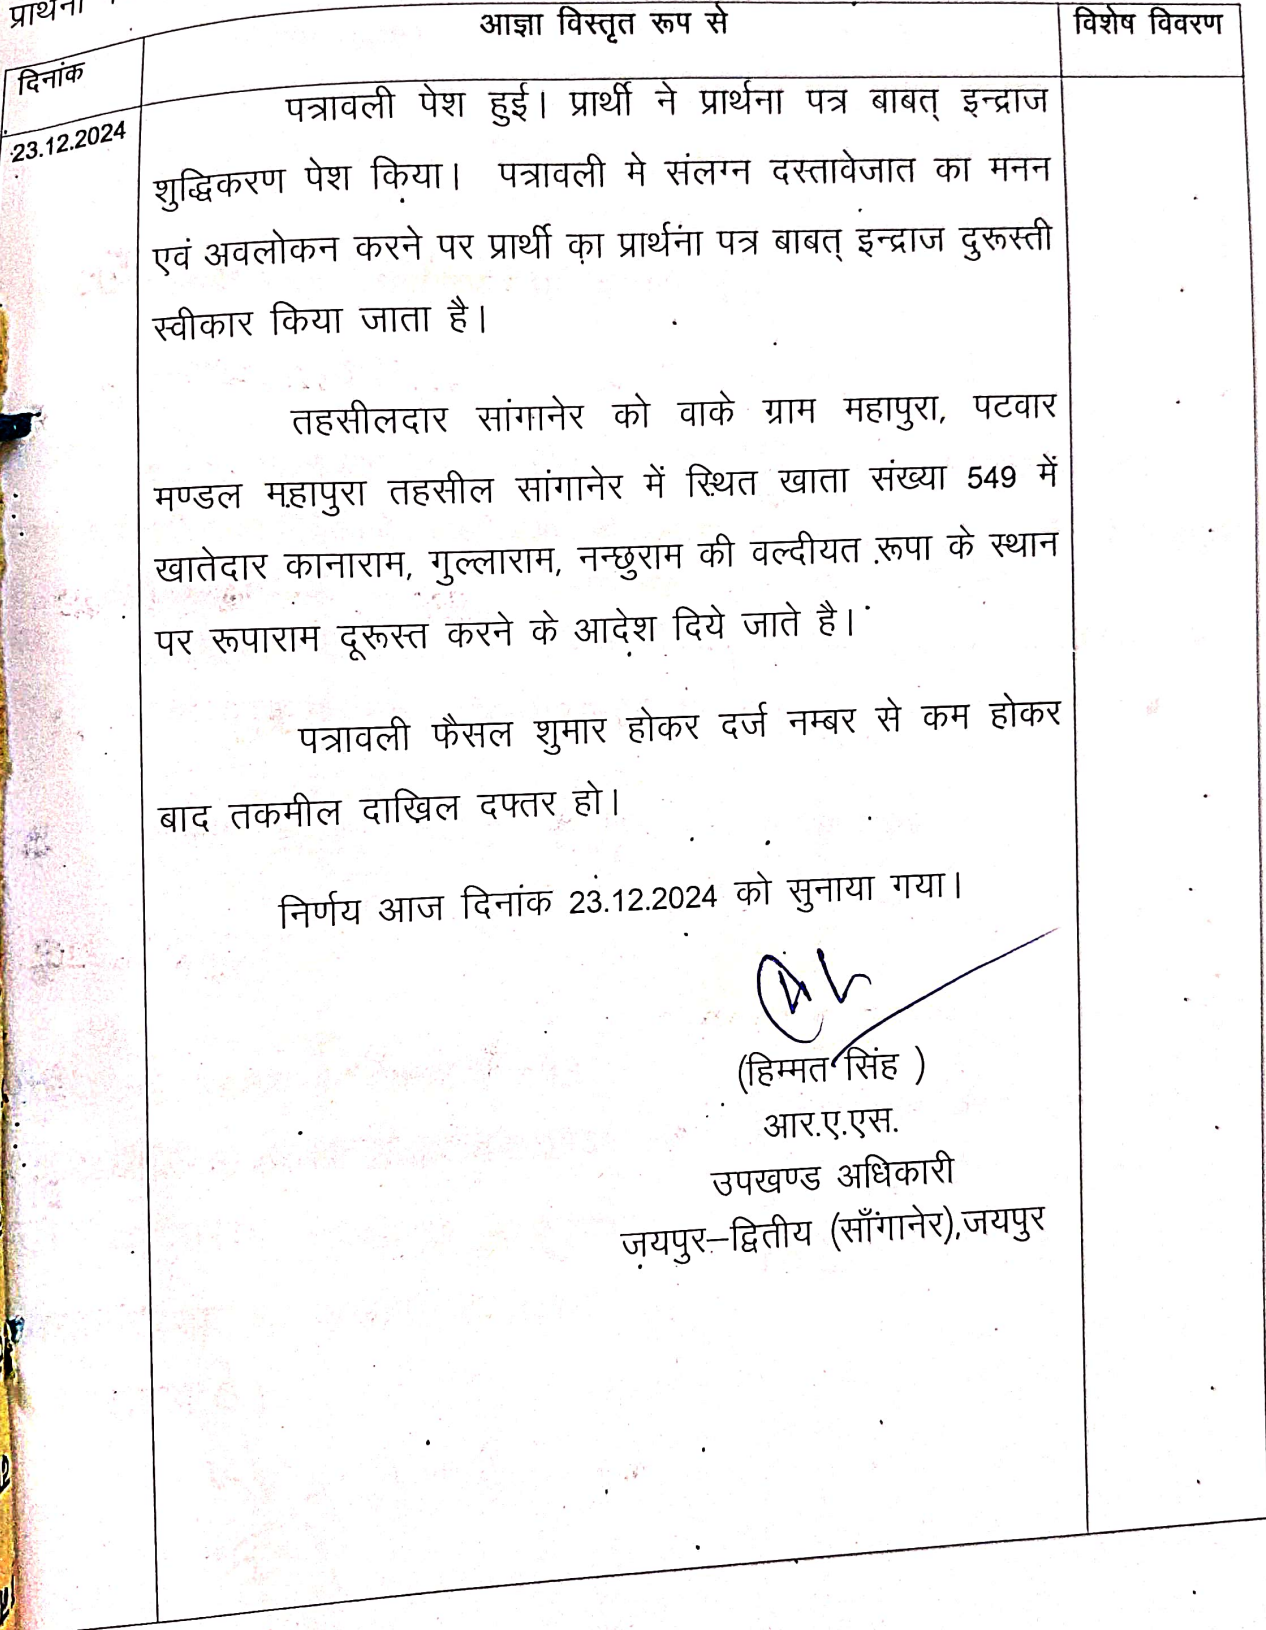 प्रार्थना
दिनांक
आज्ञा विस्तृत रूप से
विशेष विवरण
23.12.2024
पत्रावली पेश हुई। प्रार्थी ने प्रार्थना पत्र बाबत् इन्द्राज
शुद्धिकरण पेश किया। पत्रावली मे संलग्न दस्तावेजात का मनन
एवं अवलोकन करने पर प्रार्थी का प्रार्थना पत्र बाबत् इन्द्राज दुरूस्ती
स्वीकार किया जाता है।
तहसीलदार सांगानेर को वाके ग्राम महापुरा, पटवार
मण्डल महापुरा तहसील सांगानेर में स्थित खाता संख्या 549 में
खातेदार कानाराम, गुल्लाराम, नन्छुराम की वल्दीयत रूपा के स्थान
पर रूपाराम दूरूस्त करने के आदेश दिये जाते है।
पत्रावली फैसल शुमार होकर दर्ज नम्बर से कम होकर
बाद तकमील दाखिल दफ्तर हो।
निर्णय आज दिनांक 23.12.2024 को सुनाया गया।
(हिम्मत सिंह )
आर.ए.एस.
उपखण्ड अधिकारी
जयपुर–द्वितीय (साँगानेर),जयपुर